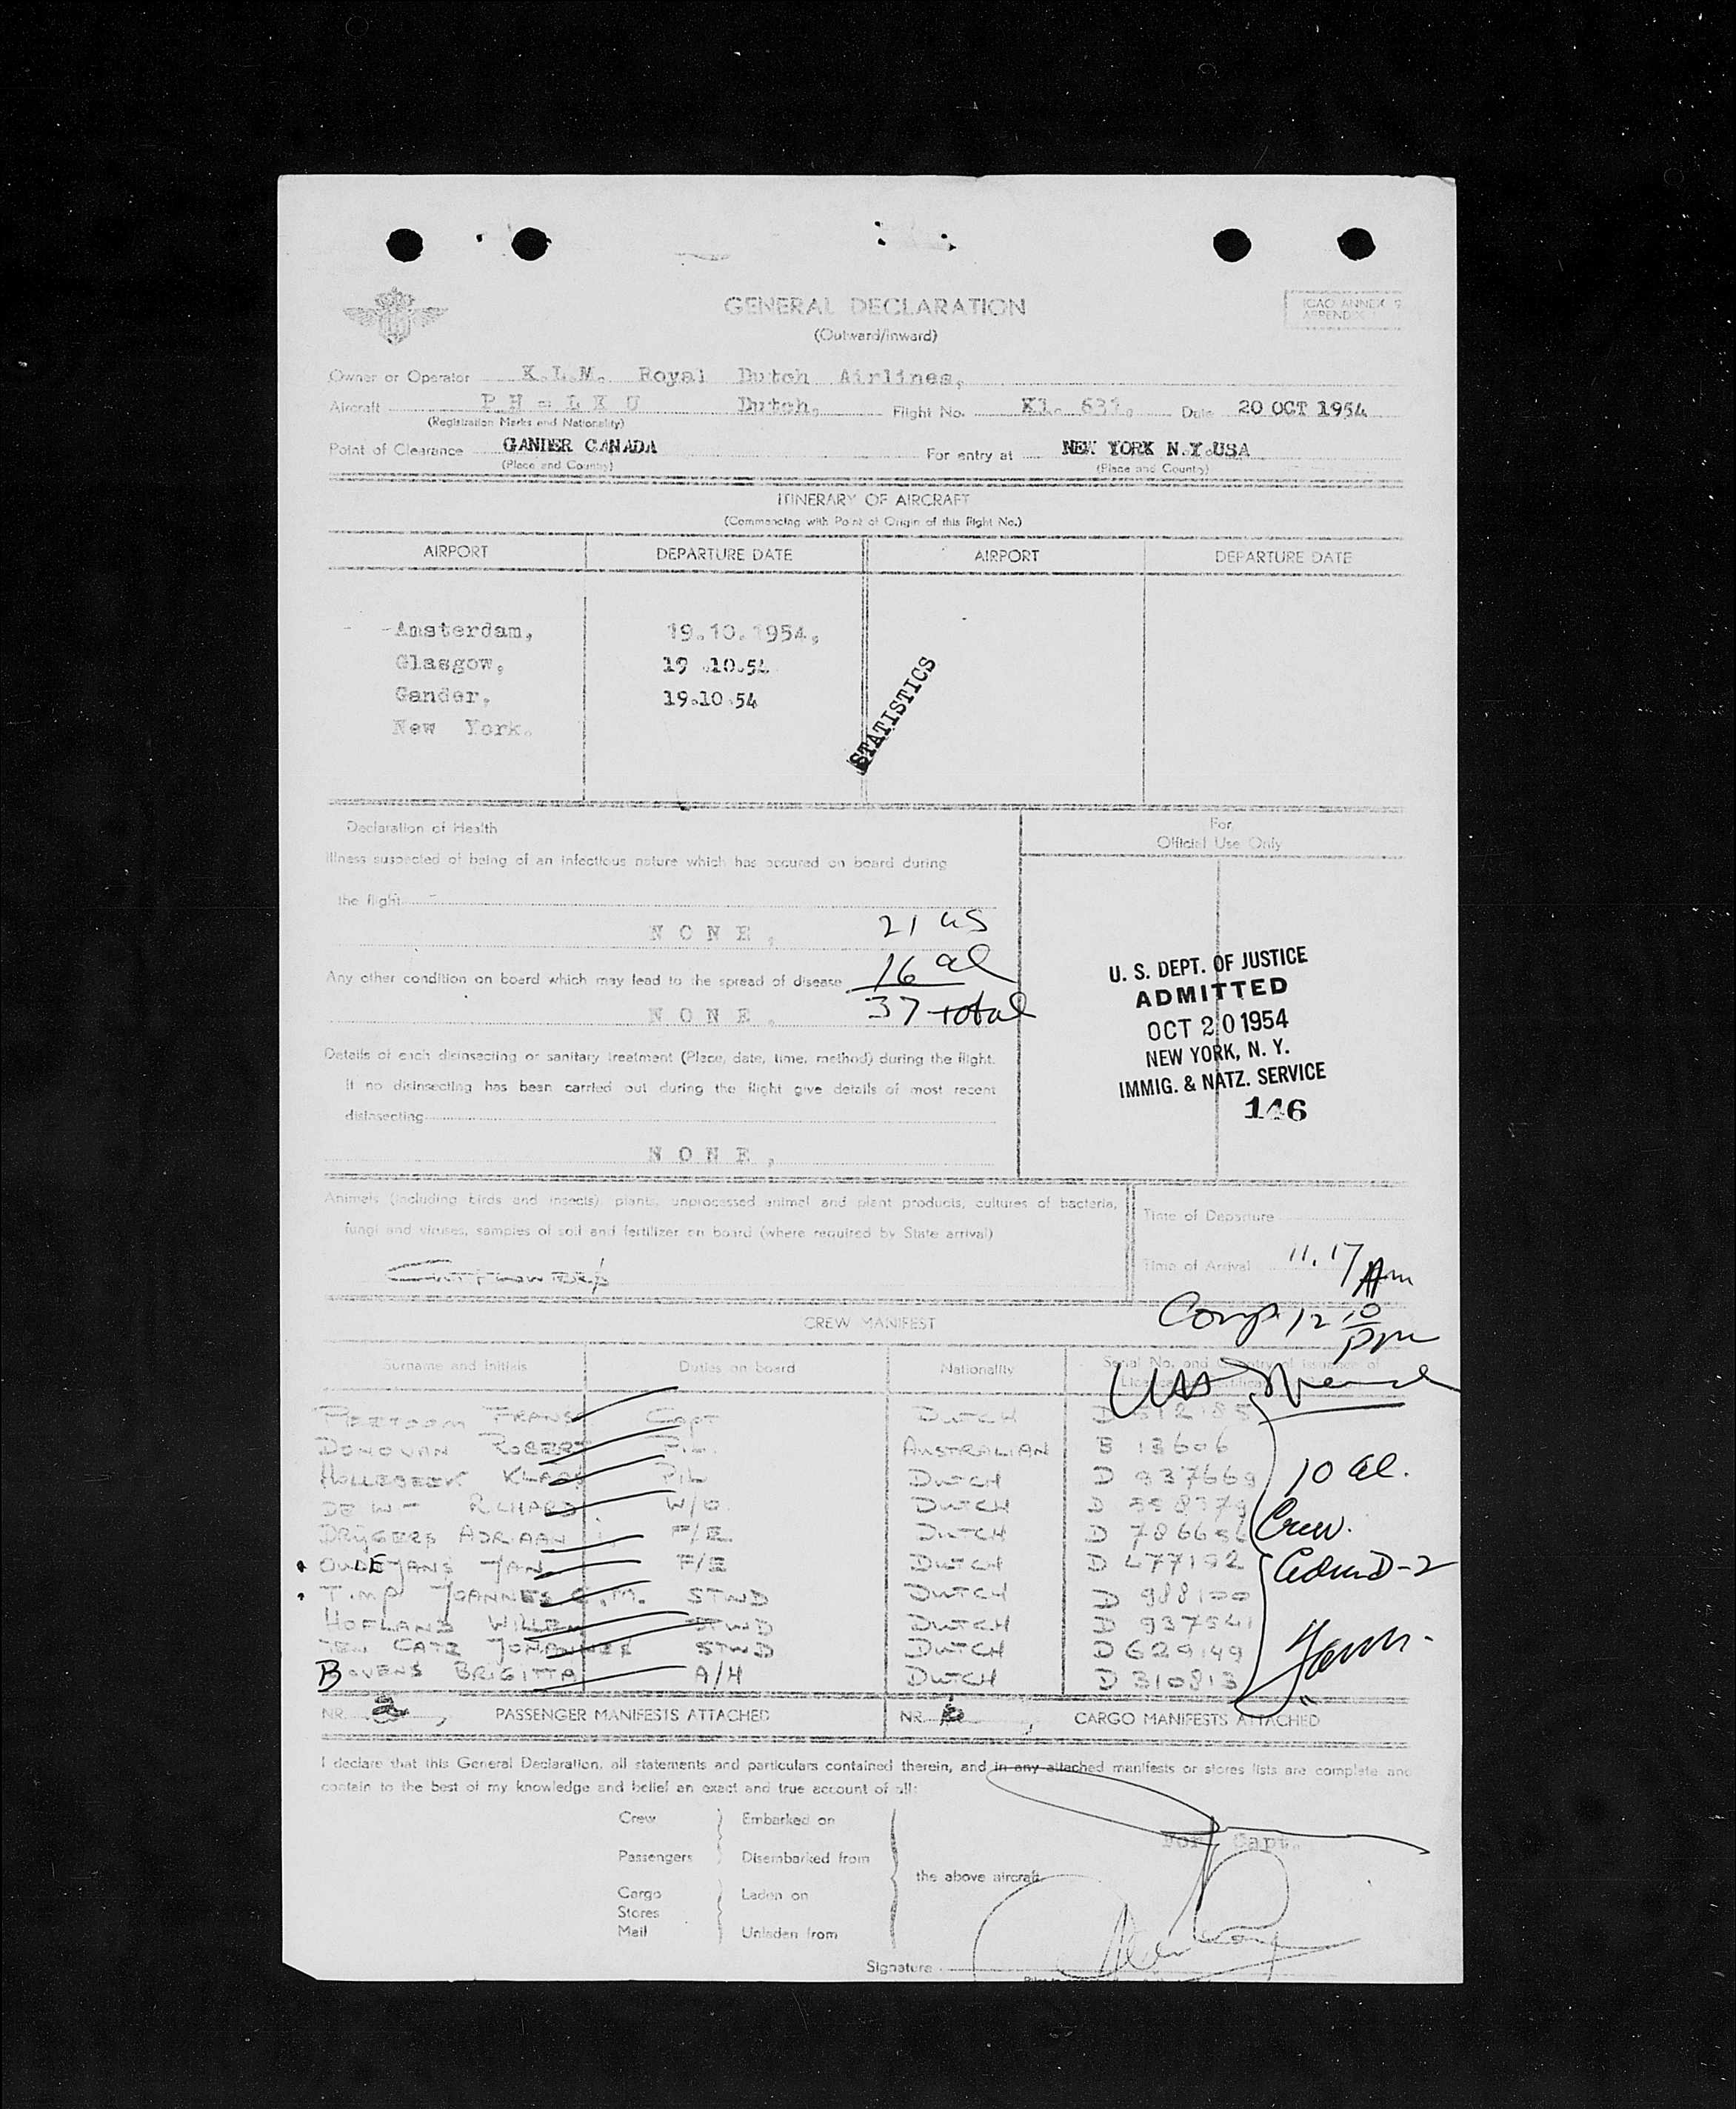 GENERAL DECLARATION
(Outward/inward)
ICAO ANNEX 9
APPENDIX
Owner or Operator K.L.M. Royal Dutch Airlines,
Aircraft PH - LKU Dutch, Flight No. Kl. 631, Date 20 OCT 1954
(Registration Marks and Nationality)
Point of Clearance GANDER CANADA For entry at NEW YORK N.Y.USA
(Place and Country) (Place and Country)
ITINERARY OF AIRCRAFT
(Commencing with Point of Origin of this flight No.)
AIRPORT DEPARTURE DATE AIRPORT DEPARTURE DATE
Amsterdam, 19.10.1954,
Glasgow, 19 .10.54
Gander, 19.10.54
New York.
STATISTICS
Declaration of Health
For
Official Use Only
Illness suspected of being of an infectious nature which has occured on board during
the flight
NONE,
21 US
16 al
37 total
Any other condition on board which may lead to the spread of disease
NONE,
U. S. DEPT. OF JUSTICE
ADMITTED
OCT 20 1954
NEW YORK, N. Y.
IMMIG. & NATZ. SERVICE
146
Details of each disinsecting or sanitary treatment (Place, date, time, method) during the flight.
If no disinsecting has been carried out during the flight give details of most recent
disinsecting
NONE,
Animals (including birds and insects) plants, unprocessed animal and plant products, cultures of bacteria,
fungi and viruses, samples of soil and fertilizer on board (where required by State arrival)
Cut flowers
Time of Departure
Time of Arrival 11.17 Am
Comp 12 10 pm
CREW MANIFEST
Surname and initials Duties on board Nationality Serial No. and Country of Issuance of
FRANS Capt DUTCH D
DONOVAN ROBERT AUSTRALIAN B 13606
HOLLEBEEK KLAAS PIL DUTCH D 937669
DE WIT RICHARD W/O. DUTCH D
ADRIAAN F/E DUTCH D
JAN F/E DUTCH D 477192
TIMP JOANNES C.M. STWD DUTCH D 988100
HOFLAND WILLEM STWD DUTCH D 937541
TEN CATE STWD DUTCH D 629149
BOVENS BRIGITTA A/H DUTCH D 310813
10 al.
Crew.
Adm D-2
NR. PASSENGER MANIFESTS ATTACHED NR. CARGO MANIFESTS ATTACHED
I declare that this General Declaration, all statements and particulars contained therein, and in any attached manifests or stores lists are complete and
contain to the best of my knowledge and belief an exact and true account of all:
Crew Embarked on
Passengers Disembarked from
the above aircraft
Cargo Laden on
Stores
Mail Unladen from
For Capt.
Signature